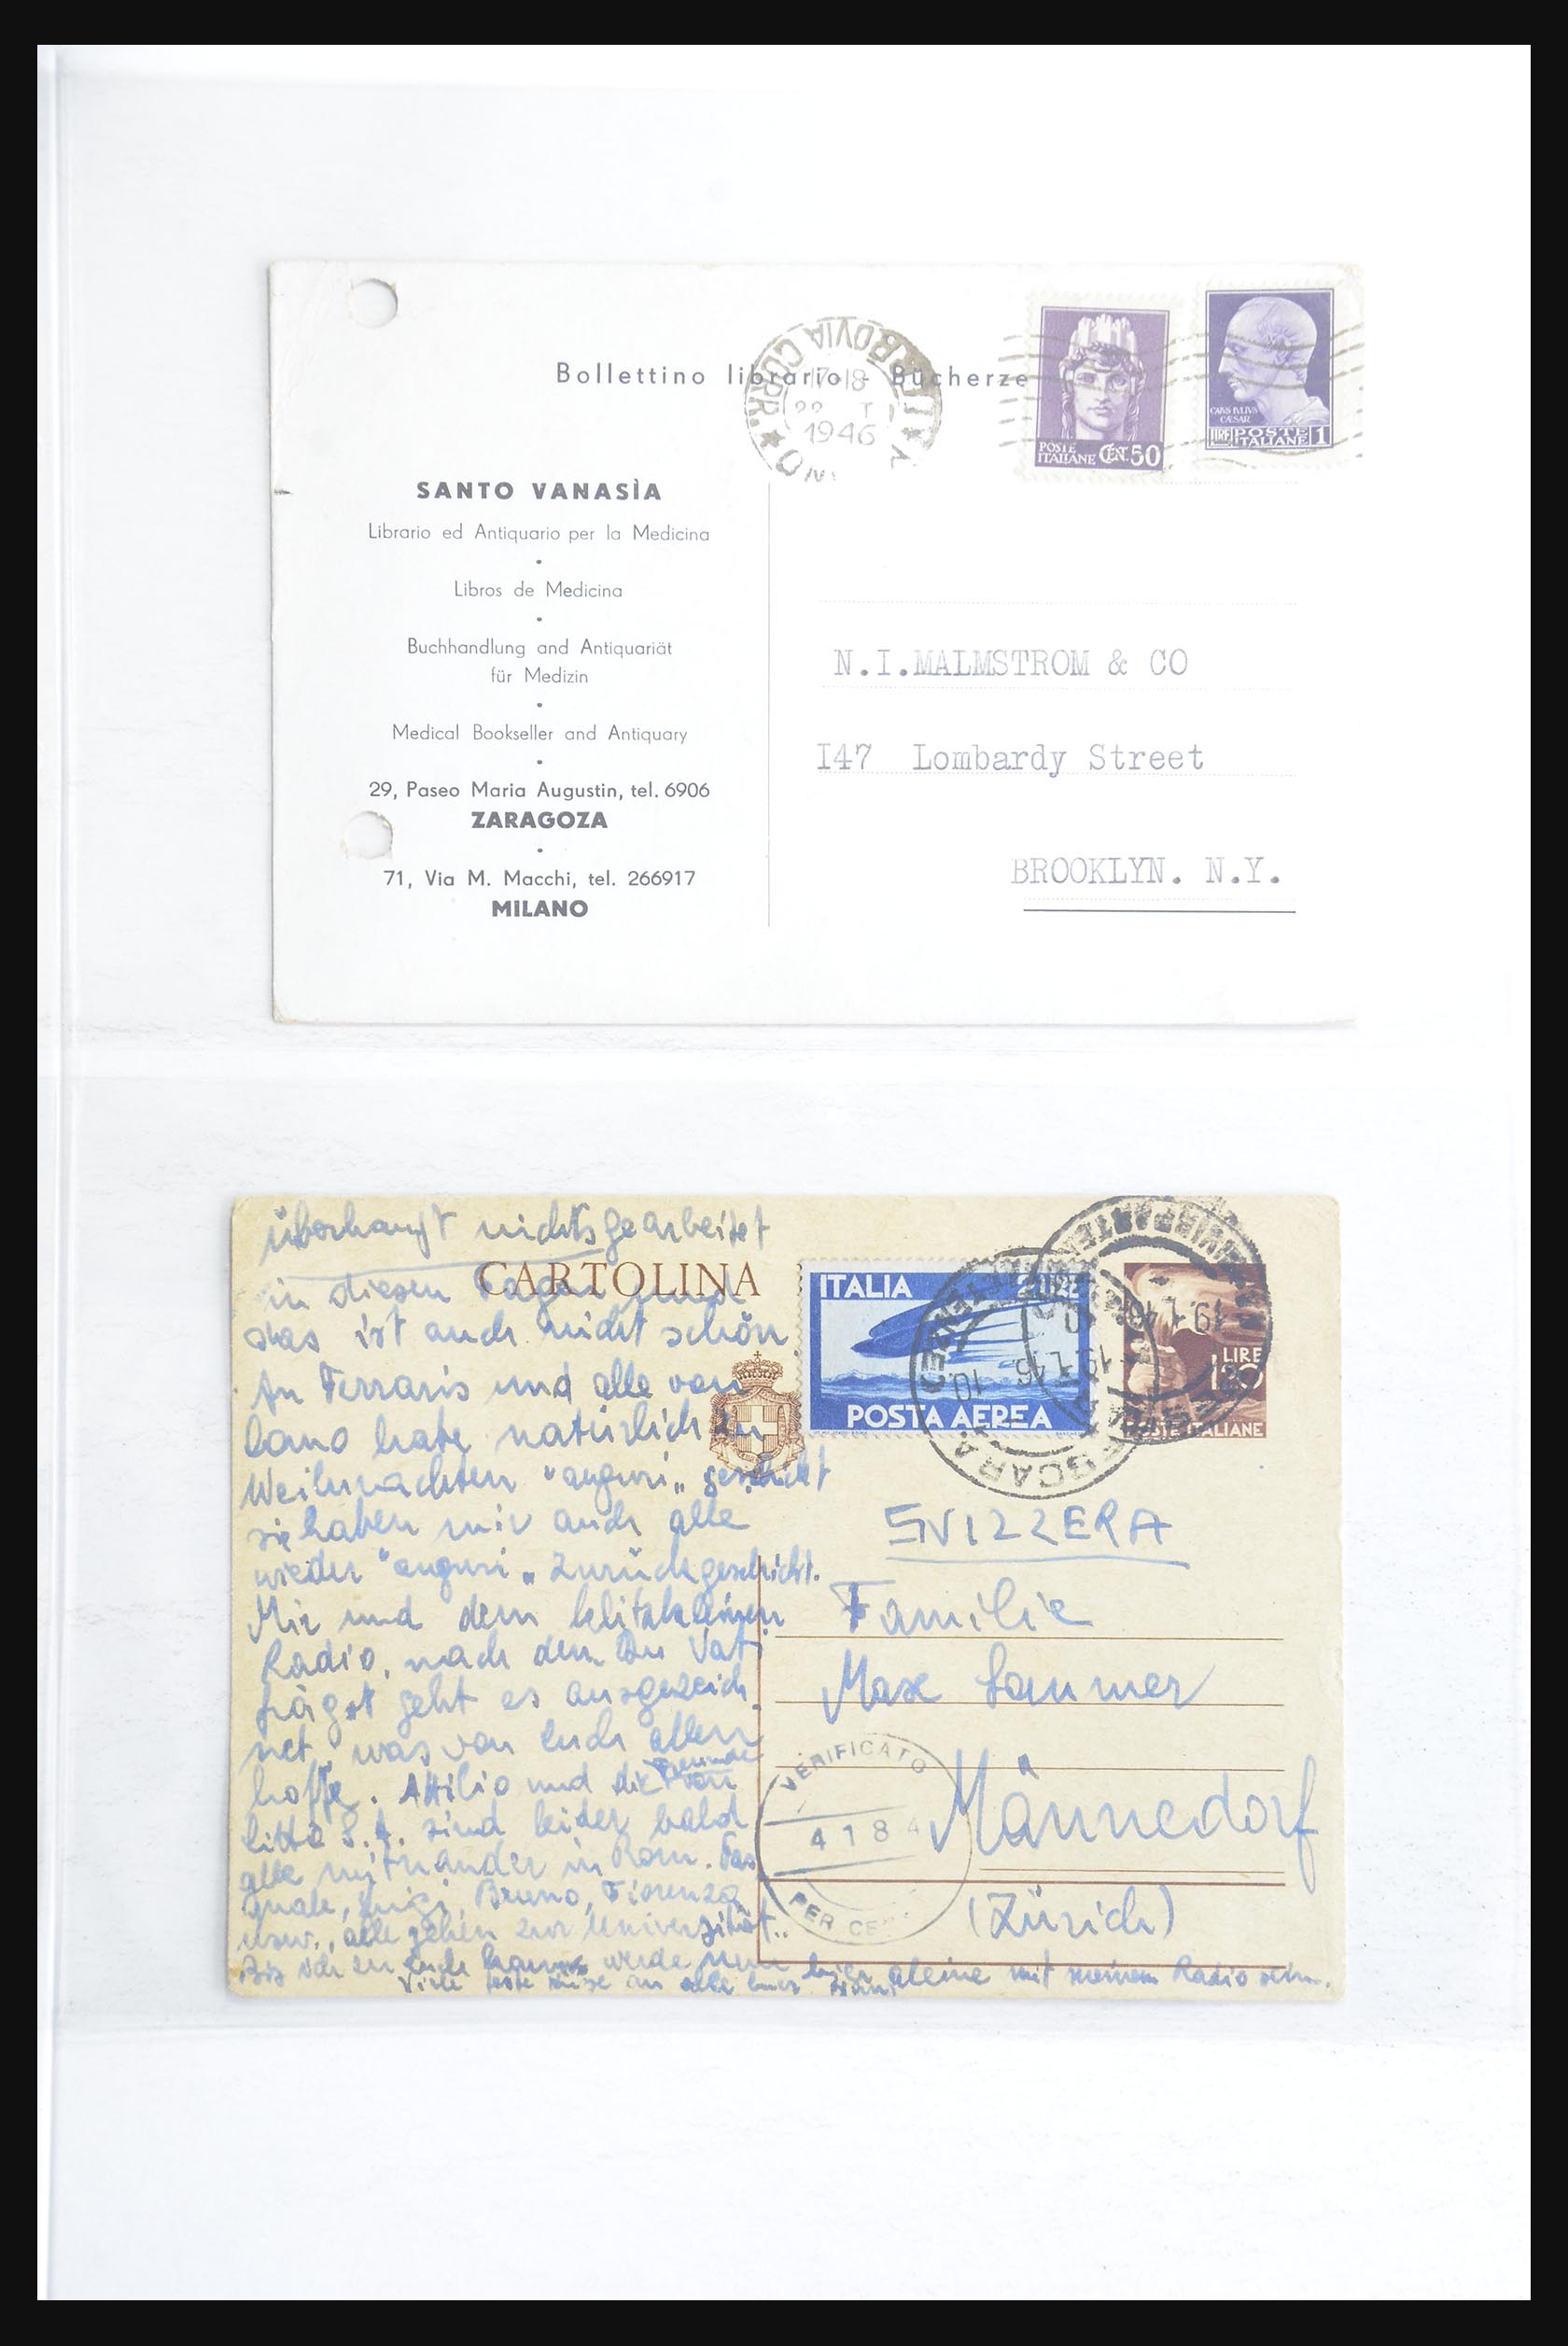 Bollettino librario - Bücherze
17-18
1946
POSTE ITALIANE CEN. 50
CAIVS IVLIVS CÆSAR
LIRE POSTE ITALIANE 1
SANTO VANASÌA
Librario ed Antiquario per la Medicina
Libros de Medicina
Buchhandlung and Antiquariät
für Medizin
Medical Bookseller and Antiquary
29, Paseo Maria Augustin, tel. 6906
ZARAGOZA
71, Via M. Macchi, tel. 266917
MILANO
N.I.MALMSTROM & CO
I47 Lombardy Street
BROOKLYN. N.Y.
überhaupt nichts gearbeitet
in diesen Tagen und
das ist auch nicht schön.
An Ferraris und alle von
habe natürlich zu
Weihnachten "auguri" geschickt
sie haben mir auch alle
wieder "auguri" zurückgeschickt.
Mir und dem klitzekleinen
Radio, nach dem Du Vati
frägst geht es ausgezeich
net, was von Euch allen
hoffe. Attilio und die Freunde von
Città S. A. sind leider bald
alle miteinander in Rom. Pas
quale, Luigi, Bruno, Fiorenzo
usw., alle gehen zur Universität..
Bis ich zu Euch komme werde nun hier aleine mit meinem Radio sein.
Viele an alle
CARTOLINA
ITALIA
POSTA AEREA
LIRE
POSTE ITALIANE
SVIZZERA
Familie
Max Sammer
Männedorf
(Zürich)
VERIFICATO
4 1 8 4
PER CE